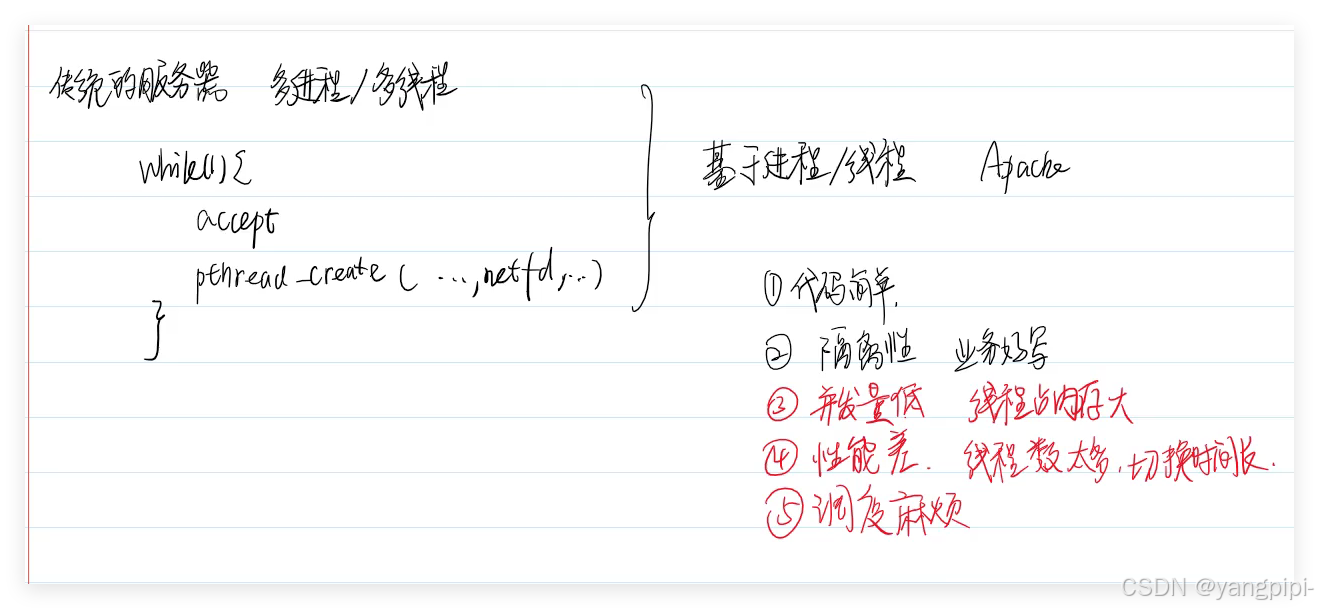 传统的服务器 多进程/多线程
while(1){
accept
pthread_create( ...,netfd,...)
}
基于进程/线程 Apache
①代码简单.
② 隔离性 业务好写
③ 并发量低 线程占内存大
④ 性能差. 线程数太多,切换时间长.
⑤ 调度麻烦
CSDN @yangpipi-